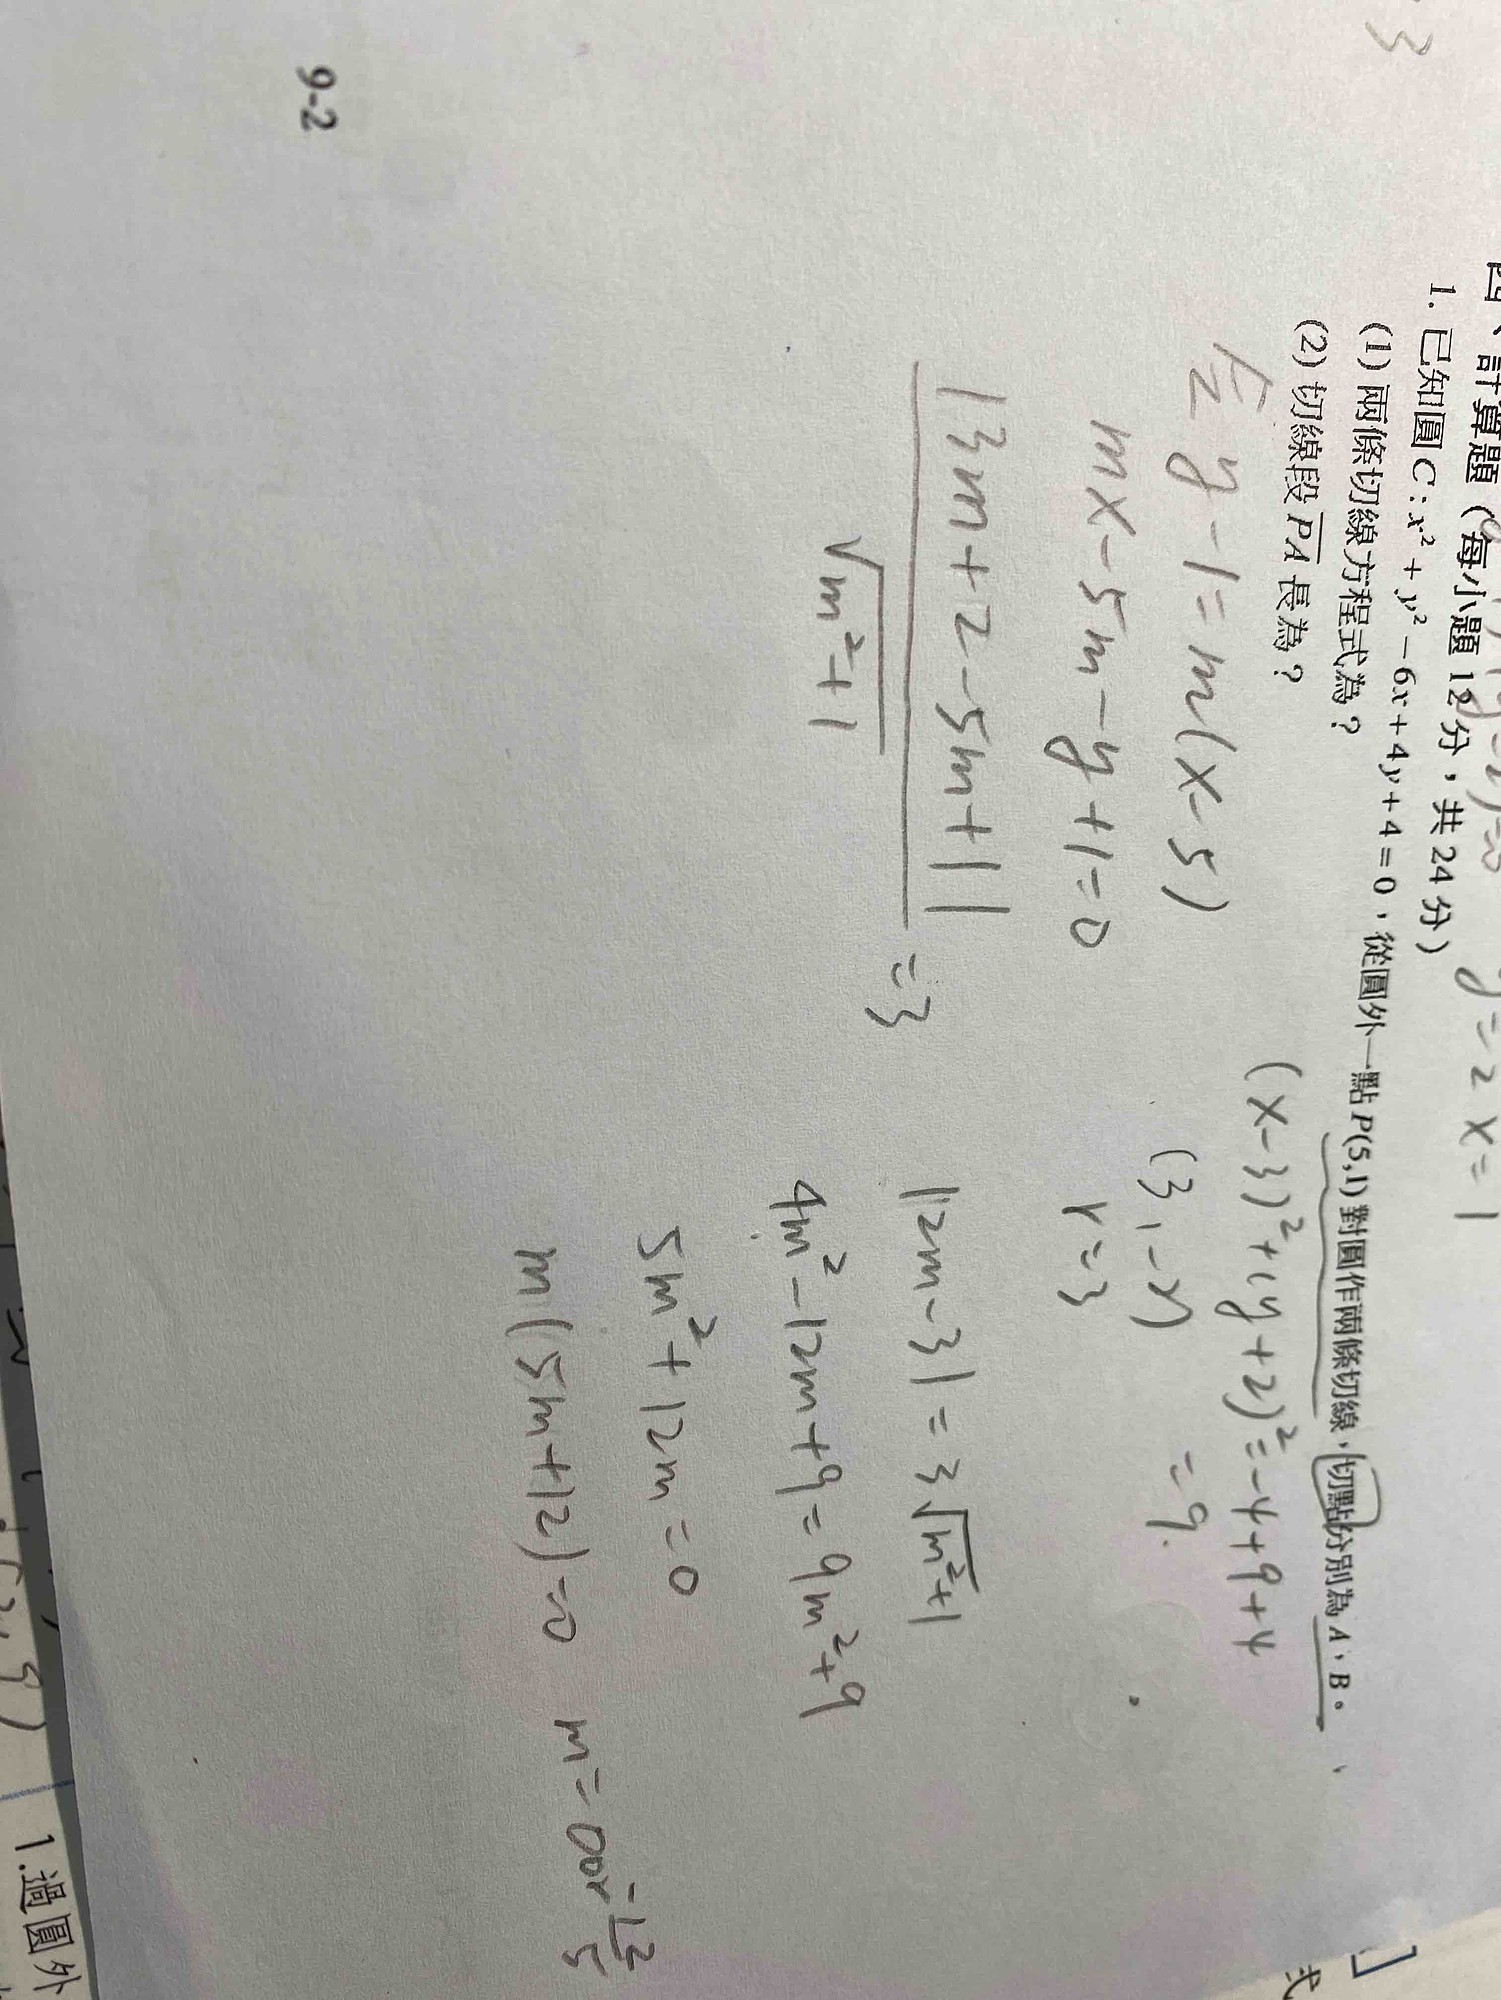 3
y=2 x=1
四、計算題(每小題12分,共24分)
1. 已知圓C:x²+y²-6x+4y+4=0,從圓外一點P(5,1)對圓作兩條切線,切點分別為A、B。
(1) 兩條切線方程式為?
(2) 切線段PA長為?
(x-3)²+(y+2)²=-4+9+4
=9
y-1=m(x-5)
(3,-2)
r=3
mx-5m-y+1=0
|3m+2-5m+1|
√m²+1
=3
|2m-3|=3√m²+1
4m²-12m+9=9m²+9
5m²+12m=0
m(5m+12)=0 m=0or-12/5
9-2
1.過圓外
式